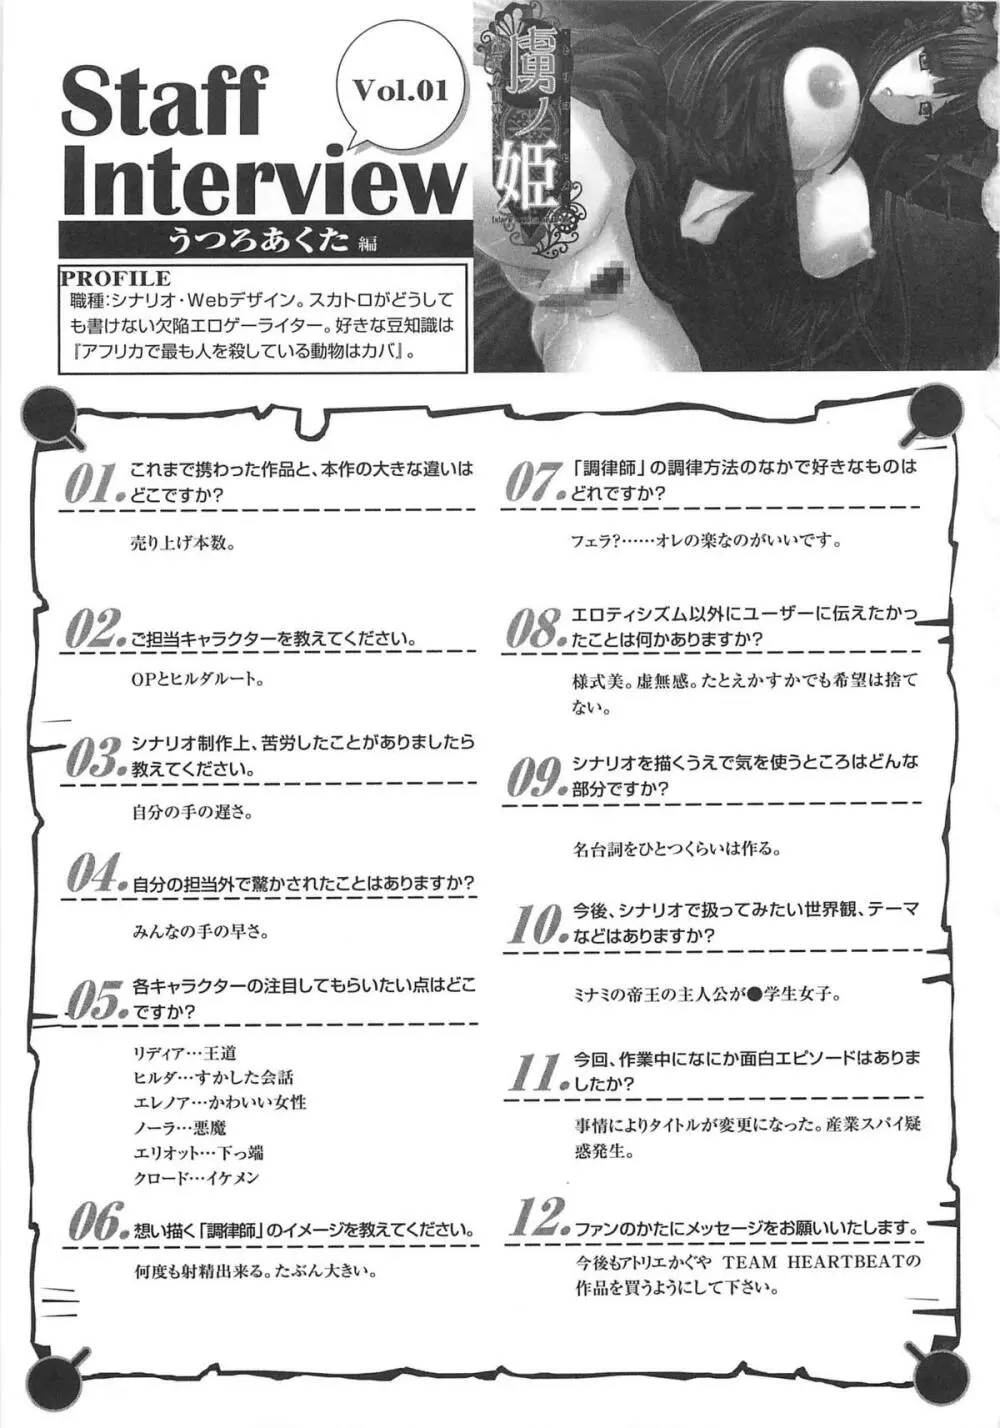 Staff
Interview
Vol.01
うつろあくた 編
虜ノ姫
PROFILE
職種：シナリオ・Webデザイン。スカトロがどうして
も書けない欠陥エロゲーライター。好きな豆知識は
『アフリカで最も人を殺している動物はカバ』。
01. これまで携わった作品と、本作の大きな違いは
どこですか？
売り上げ本数。
02. ご担当キャラクターを教えてください。
OPとヒルダルート。
03. シナリオ制作上、苦労したことがありましたら
教えてください。
自分の手の遅さ。
04. 自分の担当外で驚かされたことはありますか？
みんなの手の早さ。
05. 各キャラクターの注目してもらいたい点はどこ
ですか？
リディア…王道
ヒルダ…すかした会話
エレノア…かわいい女性
ノーラ…悪魔
エリオット…下っ端
クロード…イケメン
06. 想い描く「調律師」のイメージを教えてください。
何度も射精出来る。たぶん大きい。
07. 「調律師」の調律方法のなかで好きなものは
どれですか？
フェラ？……オレの楽なのがいいです。
08. エロティシズム以外にユーザーに伝えたかっ
たことは何かありますか？
様式美。虚無感。たとえかすかでも希望は捨て
ない。
09. シナリオを描くうえで気を使うところはどんな
部分ですか？
名台詞をひとつくらいは作る。
10. 今後、シナリオで扱ってみたい世界観、テーマ
などはありますか？
ミナミの帝王の主人公が●学生女子。
11. 今回、作業中になにか面白エピソードはありま
したか？
事情によりタイトルが変更になった。産業スパイ疑
惑発生。
12. ファンのかたにメッセージをお願いいたします。
今後もアトリエかぐや TEAM HEARTBEATの
作品を買うようにして下さい。